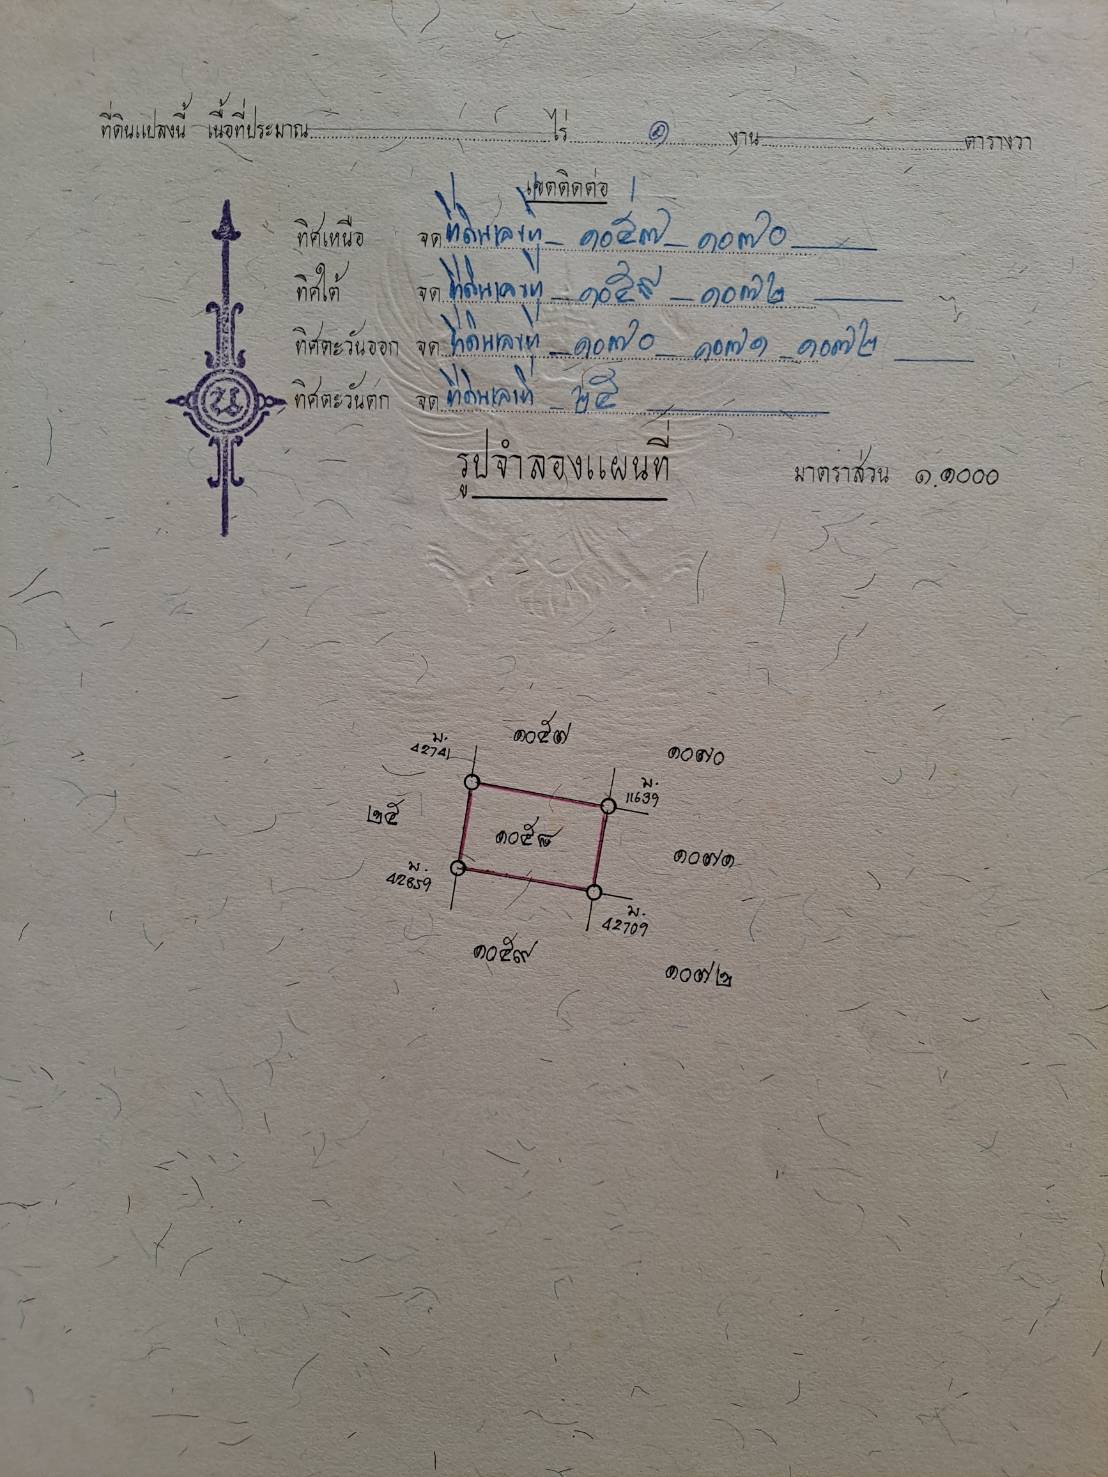 ที่ดินแปลงนี้ เนื้อที่ประมาณ ไร่ ๑ งาน ตารางวา
เขตติดต่อ
ทิศเหนือ จด ที่ดินเลขที่ ๑๐๕๗ ๑๐๗๐
ทิศใต้ จด ที่ดินเลขที่ ๑๐๕๙ ๑๐๗๒
ทิศตะวันออก จด ที่ดินเลขที่ ๑๐๗๐ ๑๐๗๑ ๑๐๗๒
น
ทิศตะวันตก จด ที่ดินเลขที่ ๒๕
รูปจำลองแผนที่ มาตราส่วน ๑.๑๐๐๐
๑๐๕๗
ม. 42741
๑๐๗๐
ม. 11639
๒๕
๑๐๕๘
๑๐๗๑
ม.
ม. 42709
๑๐๕๙
๑๐๗๒